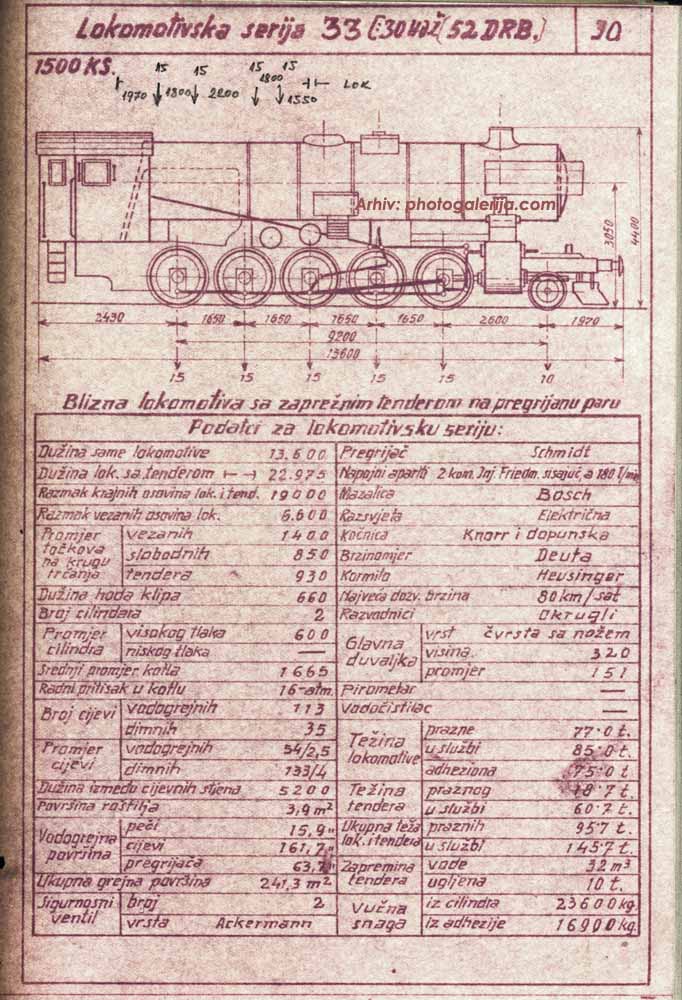 Lokomotivska serija 33 (:30 Vož (52 DRB.) 30
1500 KS.
15 15 15 15
1970 1800 2200 1800 1550 LOK
Arhiv: photogalerija.com
3050 4400
2430 1650 1650 1650 1650 2600 1970
9200
13600
15 15 15 15 15 10
Blizna lokomotiva sa zaprežnim tenderom na pregrijanu paru
Podatci za lokomotivsku seriju:
Dužina same lokomotive 13.600
Dužina lok. sa tenderom 22.975
Razmak krajnih osovina lok. i tend. 19000
Razmak vezanih osovina lok. 6.600
Promjer točkova na krugu trčanja
vezanih 1400
slobodnih 850
tendera 930
Dužina hoda klipa 660
Broj cilindara 2
Promjer cilindra
visokog tlaka 600
niskog tlaka —
Srednji promjer kotla 1665
Radni pritisak u kotlu 16-atm.
Broj cijevi
vodogrejnih 113
dimnih 35
Promjer cijevi
vodogrejnih 54/2,5
dimnih 133/4
Dužina između cijevnih stjena 5200
Površina roštilja 3,9 m²
Vodogrejna površina
peći 15,9 "
cijevi 161,7 "
pregrijača 63,7 "
Ukupna grejna površina 241,3 m²
Sigurnosni ventil
broj 2
vrsta Ackermann
Pregrijač Schmidt
Napojni aparati 2 kom. Inj. Friedm. sisajuć. a 180 l/min
Mazalica Bosch
Razsvjeta Električna
Kočnica Knorr i dopunska
Brzinomjer Deuta
Kormilo Heusinger
Najveća dozv. brzina 80 km/sat
Razvodnici okrugli
Glavna duvaljka
vrst čvrsta sa nožem
visina. 320
promjer 151
Pirometar —
Vodočistilac —
Težina lokomotive
prazne 77·0 t.
u službi 85·0 t.
adheziona 75·0 t
Težina tendera
praznog 18·7 t
u službi 60·7 t.
Ukupna teža lok. i tendera
praznih 95·7 t.
u službi 145·7 t.
Zapremina tendera
vode 32 m³
ugljena 10 t.
Vučna snaga
iz cilindra 23600 kg
iz adhezije 16900 kg.